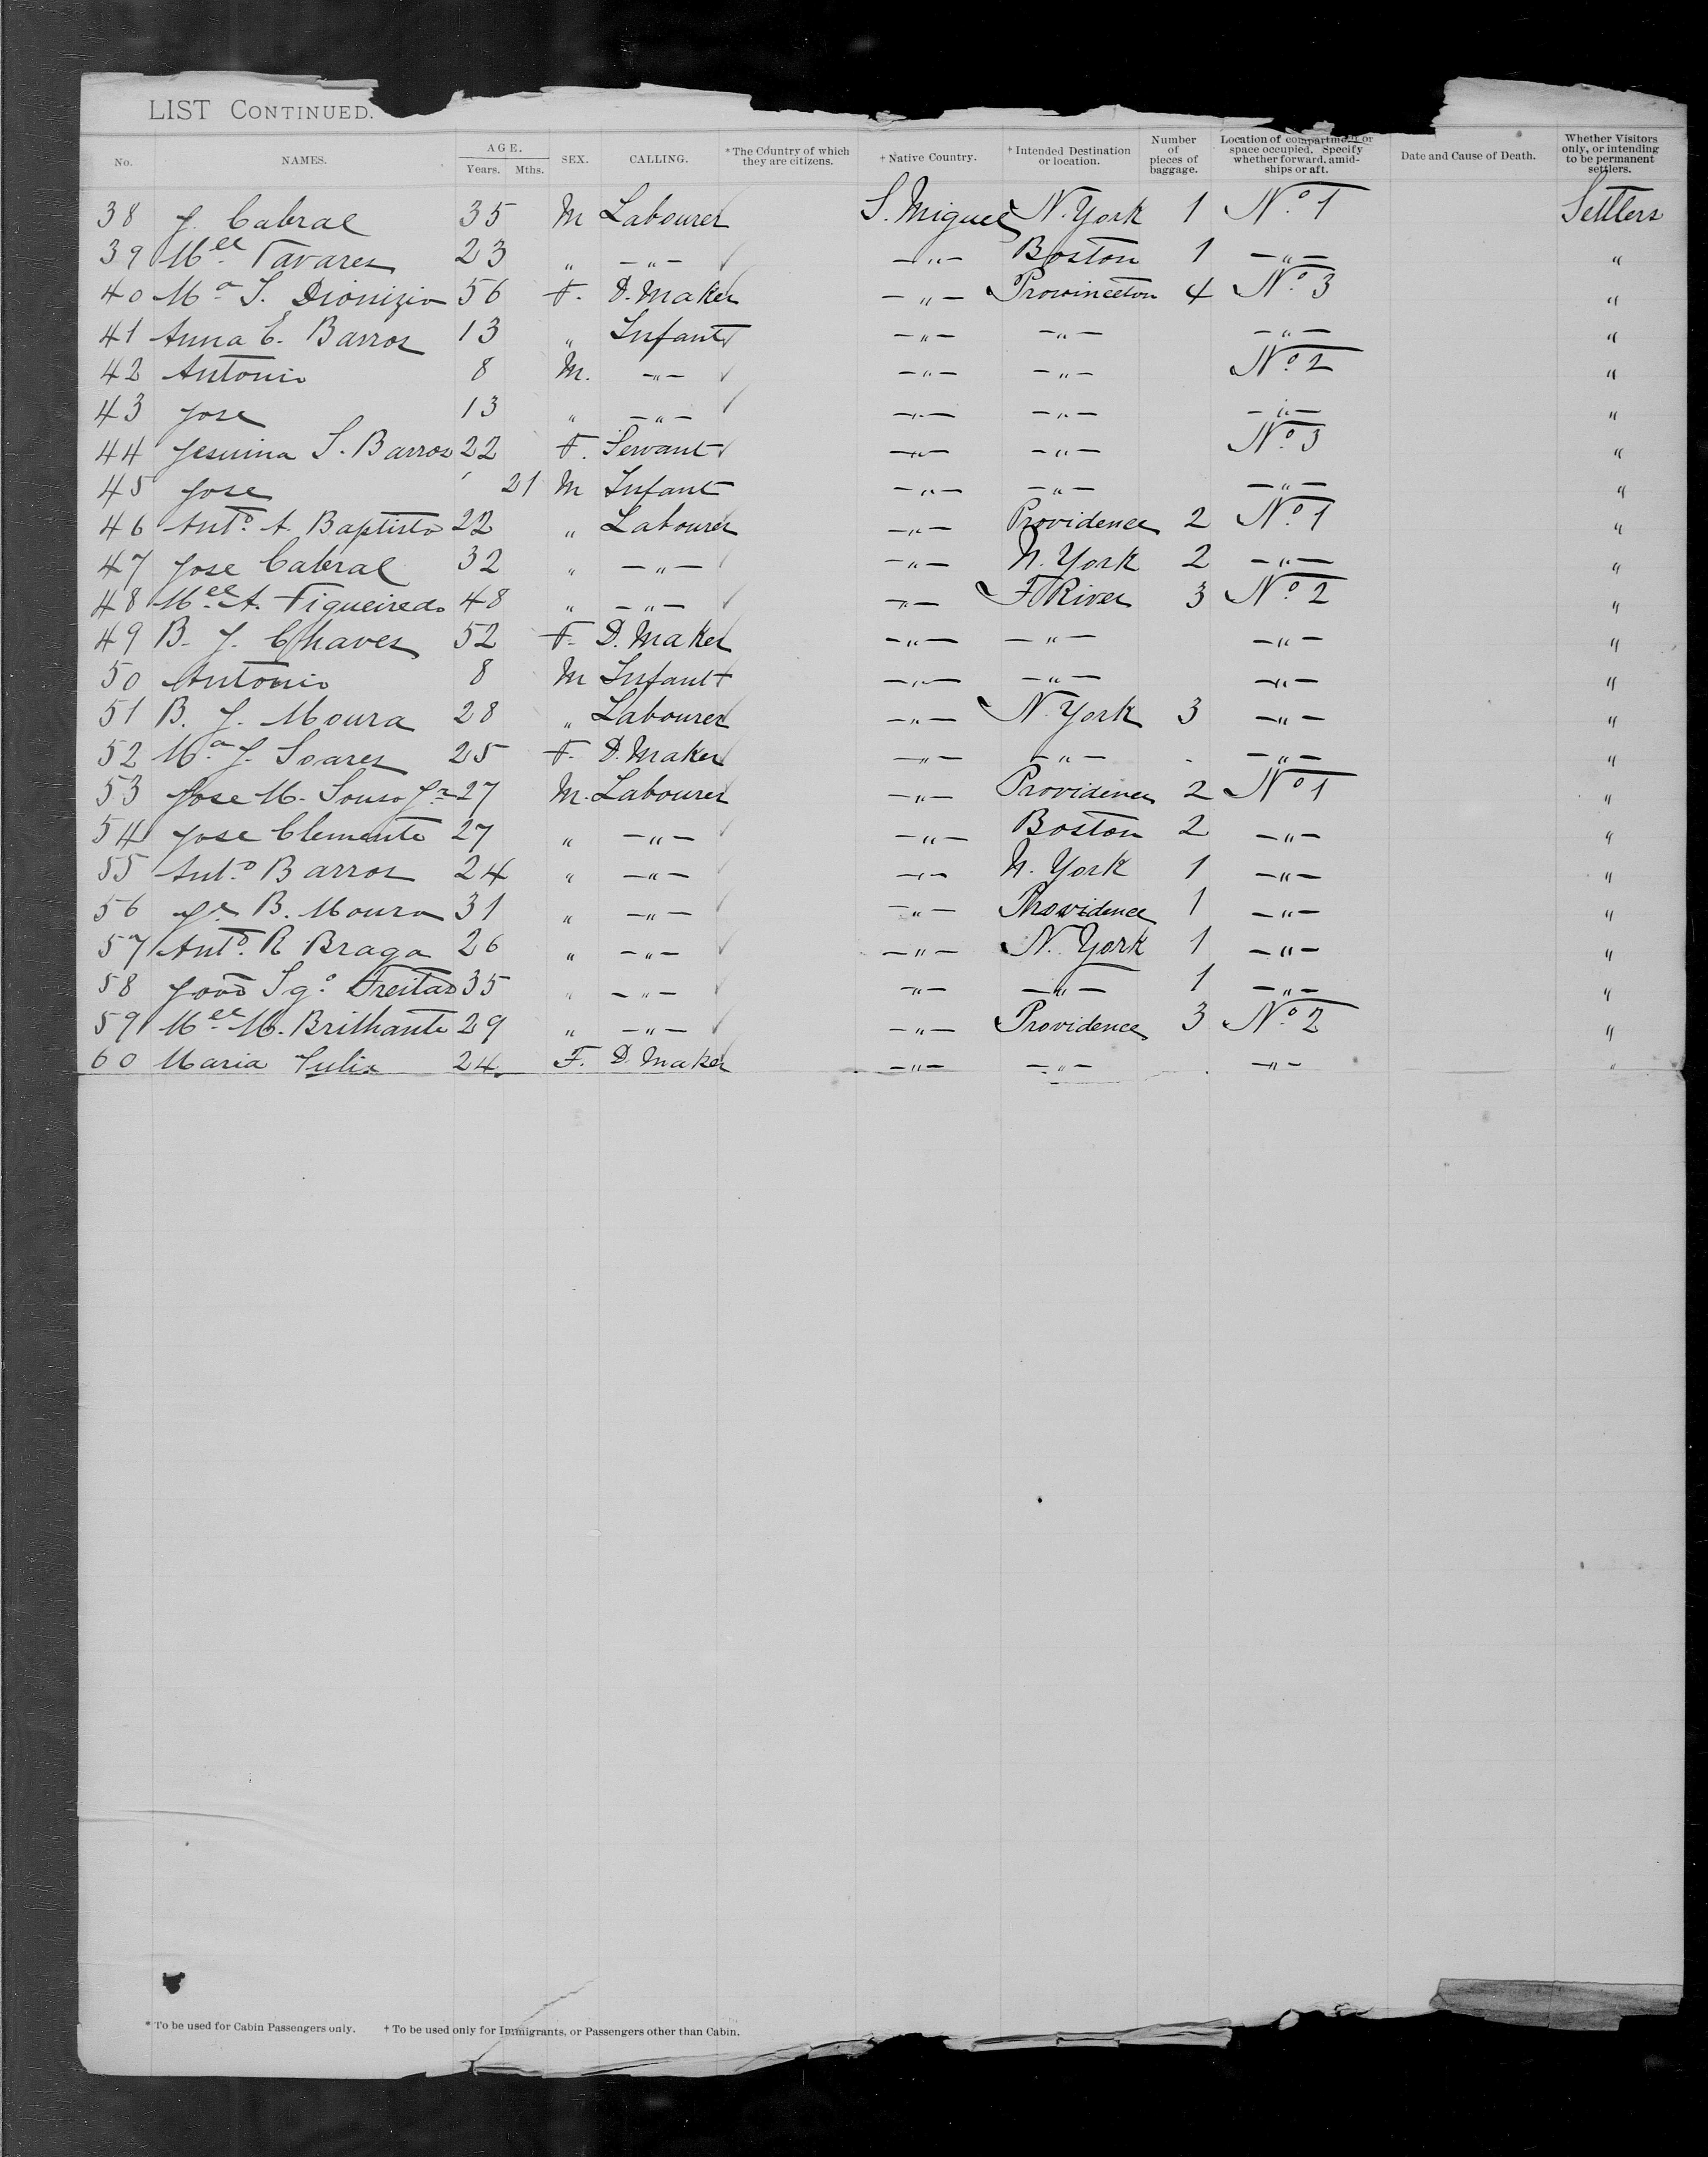 LIST CONTINUED.
No. NAMES. AGE. Years. Mths. SEX. CALLING. *The Country of which they are citizens. †Native Country. †Intended Destination or location. Number of pieces of baggage. Location of compartment or space occupied. Specify whether forward, amidships or aft. Date and Cause of Death. Whether Visitors only, or intending to be permanent settlers.
38 J. Cabral 35 M Labourer S. Miguel N. York 1 Nº 1 Settlers
39 Mel Tavares 23 " —"— —"— Boston 1 —"— "
40 Mª S. Dionizio 56 F. D. Maker —"— Provinceton 4 Nº 3 "
41 Anna E. Barros 13 " Infant —"— —"— —"— "
42 Antonio 8 M. —"— —"— —"— Nº 2 "
43 Jose 13 " —"— —"— —"— —"— "
44 Jesuina S. Barros 22 F. Servant —"— —"— Nº 3 "
45 Jose 21 M Infant —"— —"— —"— "
46 Antº A. Baptista 22 " Labourer —"— Providence 2 Nº 1 "
47 Jose Cabral 32 " —"— —"— N. York 2 —"— "
48 Mel A. Figueiredo 48 " —"— —"— F River 3 Nº 2 "
49 B. J. Chaves 52 F. D. Maker —"— —"— —"— "
50 Antonio 8 M Infant —"— —"— —"— "
51 B. J. Moura 28 " Labourer —"— N. York 3 —"— "
52 Mª J. Soares 25 F. D. Maker —"— —"— —"— "
53 Jose M. Souza Jr 27 M. Labourer —"— Providence 2 Nº 1 "
54 Jose Clemente 27 " —"— —"— Boston 2 —"— "
55 Antº Barros 24 " —"— —"— N. York 1 —"— "
56 Je B. Moura 31 " —"— —"— Providence 1 —"— "
57 Antº R Braga 26 " —"— —"— N. York 1 —"— "
58 João Sgº Freitas 35 " —"— —"— —"— 1 —"— "
59 Mel M. Brilhante 29 " —"— —"— Providence 3 Nº 2 "
60 Maria Julia 24 F. D. Maker —"— —"— —"— "
* To be used for Cabin Passengers only. † To be used only for Immigrants, or Passengers other than Cabin.